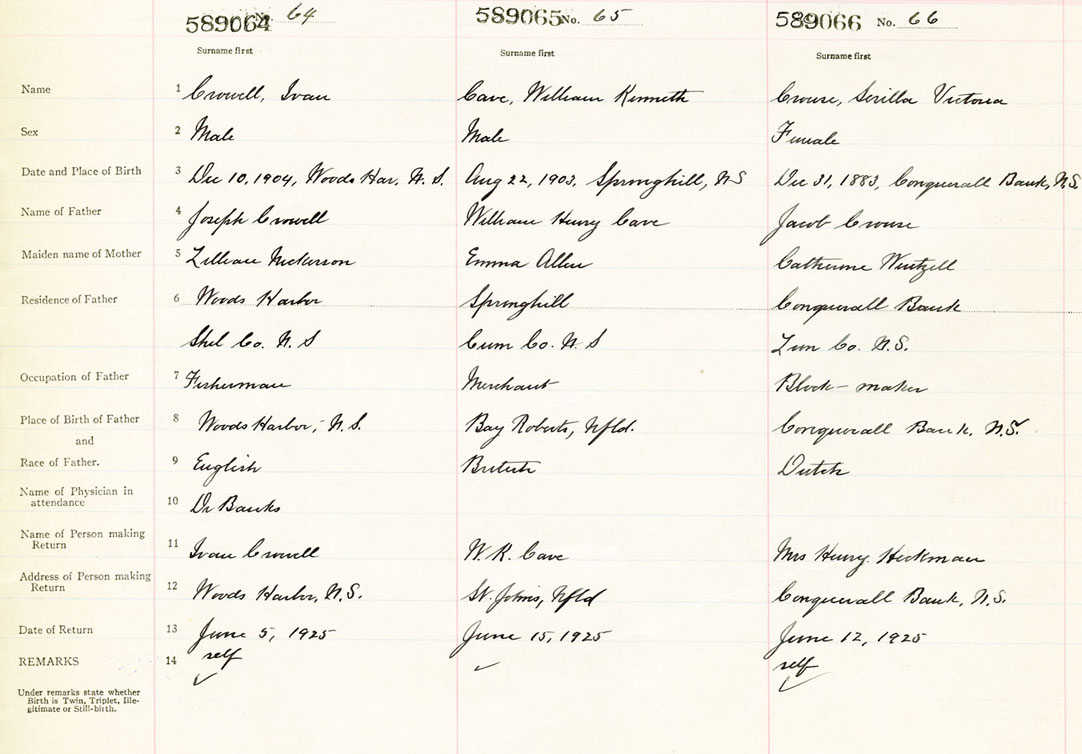 589064 64 589065 No. 65 589066 No. 66
Surname first Surname first Surname first
Name 1 Crowell, Ivan Cave, William Kenneth Crouse, Serilla Victoria
Sex 2 Male Male Female
Date and Place of Birth 3 Dec 10, 1904, Woods Har. N. S. Aug 22, 1903, Springhill, NS Dec 31, 1883, Conquerall Bank, N.S.
Name of Father 4 Joseph Crowell William Henry Cave Jacob Crouse
Maiden name of Mother 5 Lillian Nickerson Emma Allen Catherine Wentzell
Residence of Father 6 Woods Harbor Springhill Conquerall Bank
Shel Co. N. S Cum Co. N. S Lun Co. N.S.
Occupation of Father 7 Fisherman Merchant Block-maker
Place of Birth of Father 8 Woods Harbor, N.S. Bay Roberts, Nfld. Conquerall Bank, N.S.
and
Race of Father. 9 English British Dutch
Name of Physician in
attendance 10 Dr Banks
Name of Person making
Return 11 Ivan Crowell W. K. Cave Mrs Henry Heckman
Address of Person making
Return 12 Woods Harbor, N.S. St. Johns, Nfld Conquerall Bank, N.S.
Date of Return 13 June 5, 1925 June 15, 1925 June 12, 1925
REMARKS 14 self ✓ self
✓ ✓
Under remarks state whether
Birth is Twin, Triplet, Ille-
gitimate or Still-birth.